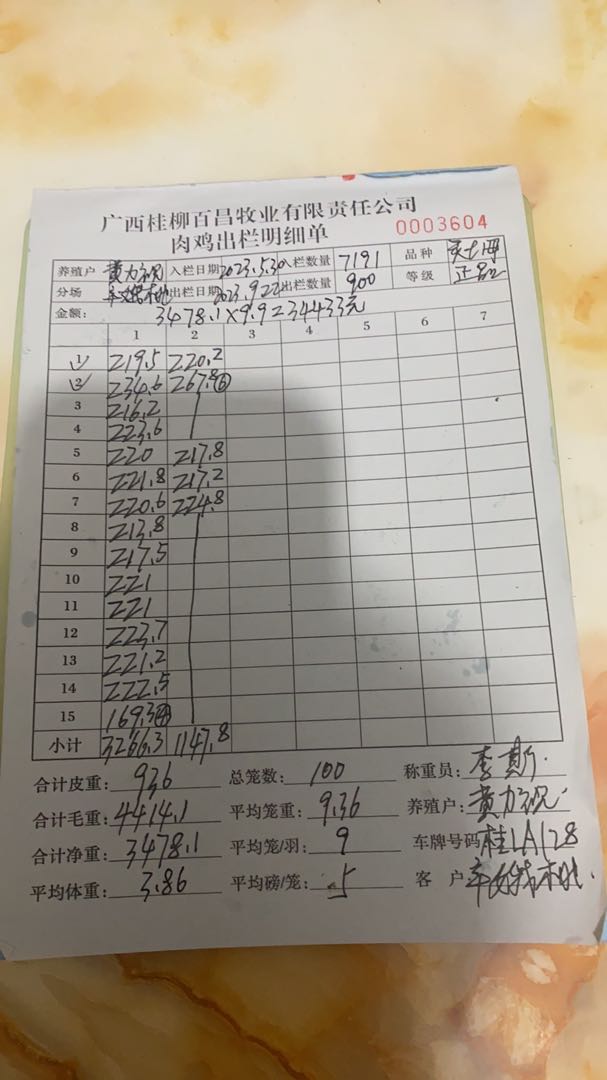 广西桂柳百昌牧业有限责任公司
肉鸡出栏明细单 0003604
养殖户 黄力 入栏日期 2023.5.30 入栏数量 7191 品种
分场 出栏日期 2023.9.22 出栏数量 900 等级 正品
金额: 3478.1×9.9=34433元
1 2 3 4 5 6 7
1 219.5 220.2
2 234.6 267.8⑥
3 216.2
4 223.6
5 220 217.8
6 221.8 217.2
7 220.6 224.8
8 213.8
9 217.5
10 221
11 221
12 223.7
13 221.2
14 222.5
15 169.3④
小计 3266.3 1147.8
合计皮重: 936 总笼数: 100 称重员: 李斯
合计毛重: 4414.1 平均笼重: 9.36 养殖户: 黄力
合计净重: 3478.1 平均笼/羽: 9 车牌号码 桂LA128
平均体重: 3.86 平均磅/笼: 5 客户: